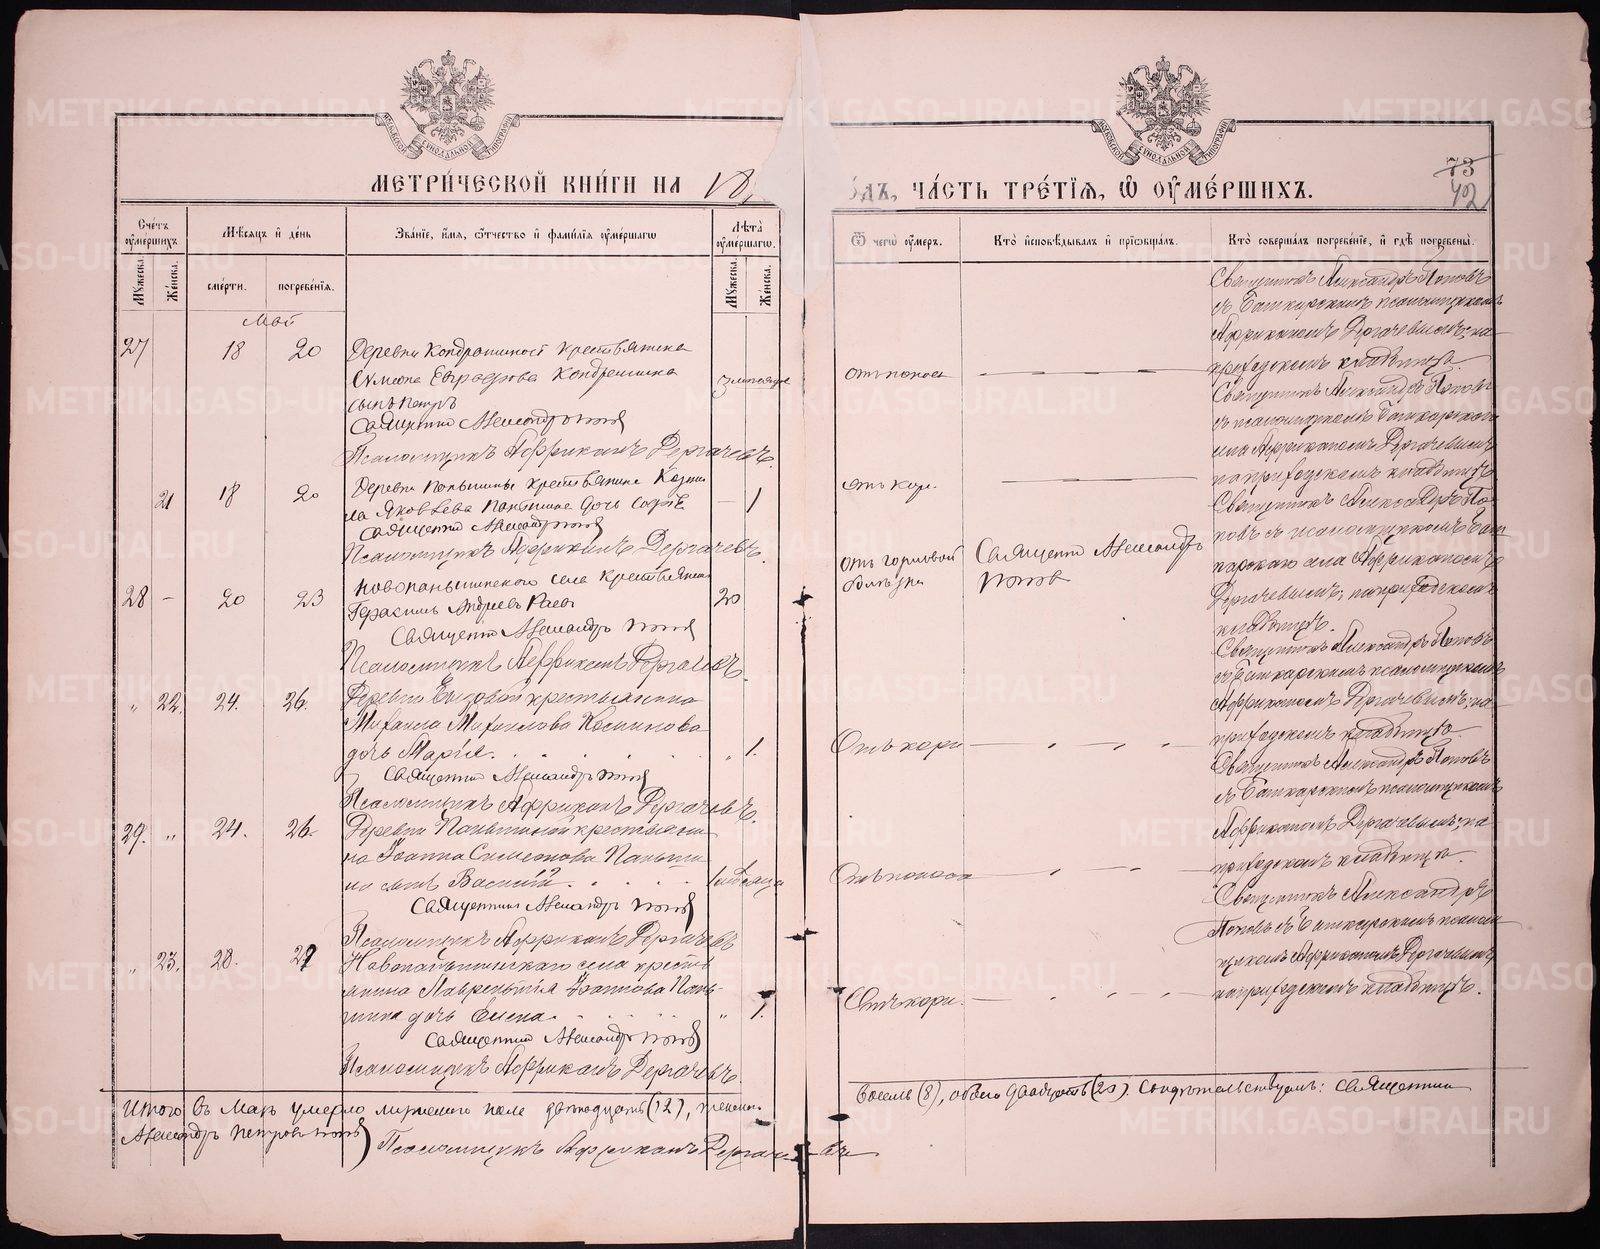 МЕТРИЧЕСКОЙ КНИГИ НА 18
ОДЪ, ЧАСТЬ ТРЕТІЯ, Ѡ ОУМЕРШИХЪ.
73
42
Счетъ оумершихъ.
Мѣсяцъ и день
Званіе, имя, ѿчество и фамилія оумершагѡ
Лѣта оумершагѡ.
Ѿ чегѡ оумеръ.
Кто исповѣдывалъ и приѡбщалъ.
Кто совершалъ погребеніе, и гдѣ погребены.
Мужеска.
Женска.
смерти.
погребенія.
Мужеска.
Женска.
Май
27 18 20 Деревни крестьянина
сынъ Петръ
Священник Александръ Попов
Псаломщикъ Африканъ Дергачевъ.
3 месяца
от поноса
Священникъ Александръ Поповъ
съ Башкарскимъ псаломщикомъ
Африканомъ Дергачевымъ; на
приходскомъ кладбищѣ.
21 18 20 Деревни Паньшины крестьянина Козми
ла Яковлева Паньшина дочь
Священник Александръ Попов
Псаломщикъ Африканъ Дергачевъ.
— 1
отъ кори.
Священникъ Александръ Поповъ
съ псаломщикомъ Башкарскаго
села Африканомъ Дергачевымъ
на приходскомъ кладбищѣ
28 – 20 23 Новопаньшинского села крестьянин
Герасимъ Андреевъ Раевъ
Священник Александръ Попов
Псаломщикъ Африканъ Дергачевъ.
20
отъ горловой
болѣзни
Священник Александръ
Попов
Священникъ Александръ По-
повъ съ псаломщикомъ Баш
карскаго села Африканомъ
Дергачевымъ; на приходскомъ
кладбищѣ.
„ 22. 24. 26. Деревни крестьянина
Михаила Михайлова
дочь Марія.
Священник Александръ Попов
Псаломщикъ Африканъ Дергачевъ.
„ 1.
Отъ кори
Священникъ Александръ Поповъ
съ Башкарскимъ псаломщикомъ
Африканомъ Дергачевымъ; на
приходскомъ кладбищѣ.
29. „ 24. 26. Деревни Паньшиной крестьяни
на Іоанна Симеонова Паньши
на сынъ Василій.
Священник Александръ Попов
Псаломщикъ Африканъ Дергачевъ
1 мѣсяца
Отъ поноса
Священникъ Александръ Поповъ
съ Башкарскимъ псаломщикомъ
Африканомъ Дергачевымъ; на
приходскомъ кладбищѣ.
„ 23. 28. 29 Новопаньшинскаго села крестья
нина Лаврентія Іоаннова Пань-
шина дочь Елена.
Священник Александръ Попов
Псаломщикъ Африканъ Дергачевъ.
„ 1.
Отъ кори.
Священникъ Александръ
Поповъ съ Башкарскимъ псалом
щикомъ Африканомъ Дергачевымъ,
на приходскомъ кладбищѣ.
Итого въ Маѣ умерло мужеского пола двѣнадцать (12), женска-
восемь (8), обоего двадцать (20). Свидѣтельствуемъ: Священник
Александръ Петровъ Попов
Псаломщикъ Африканъ Дергачевъ
METRIKI.GASO-URAL.RU